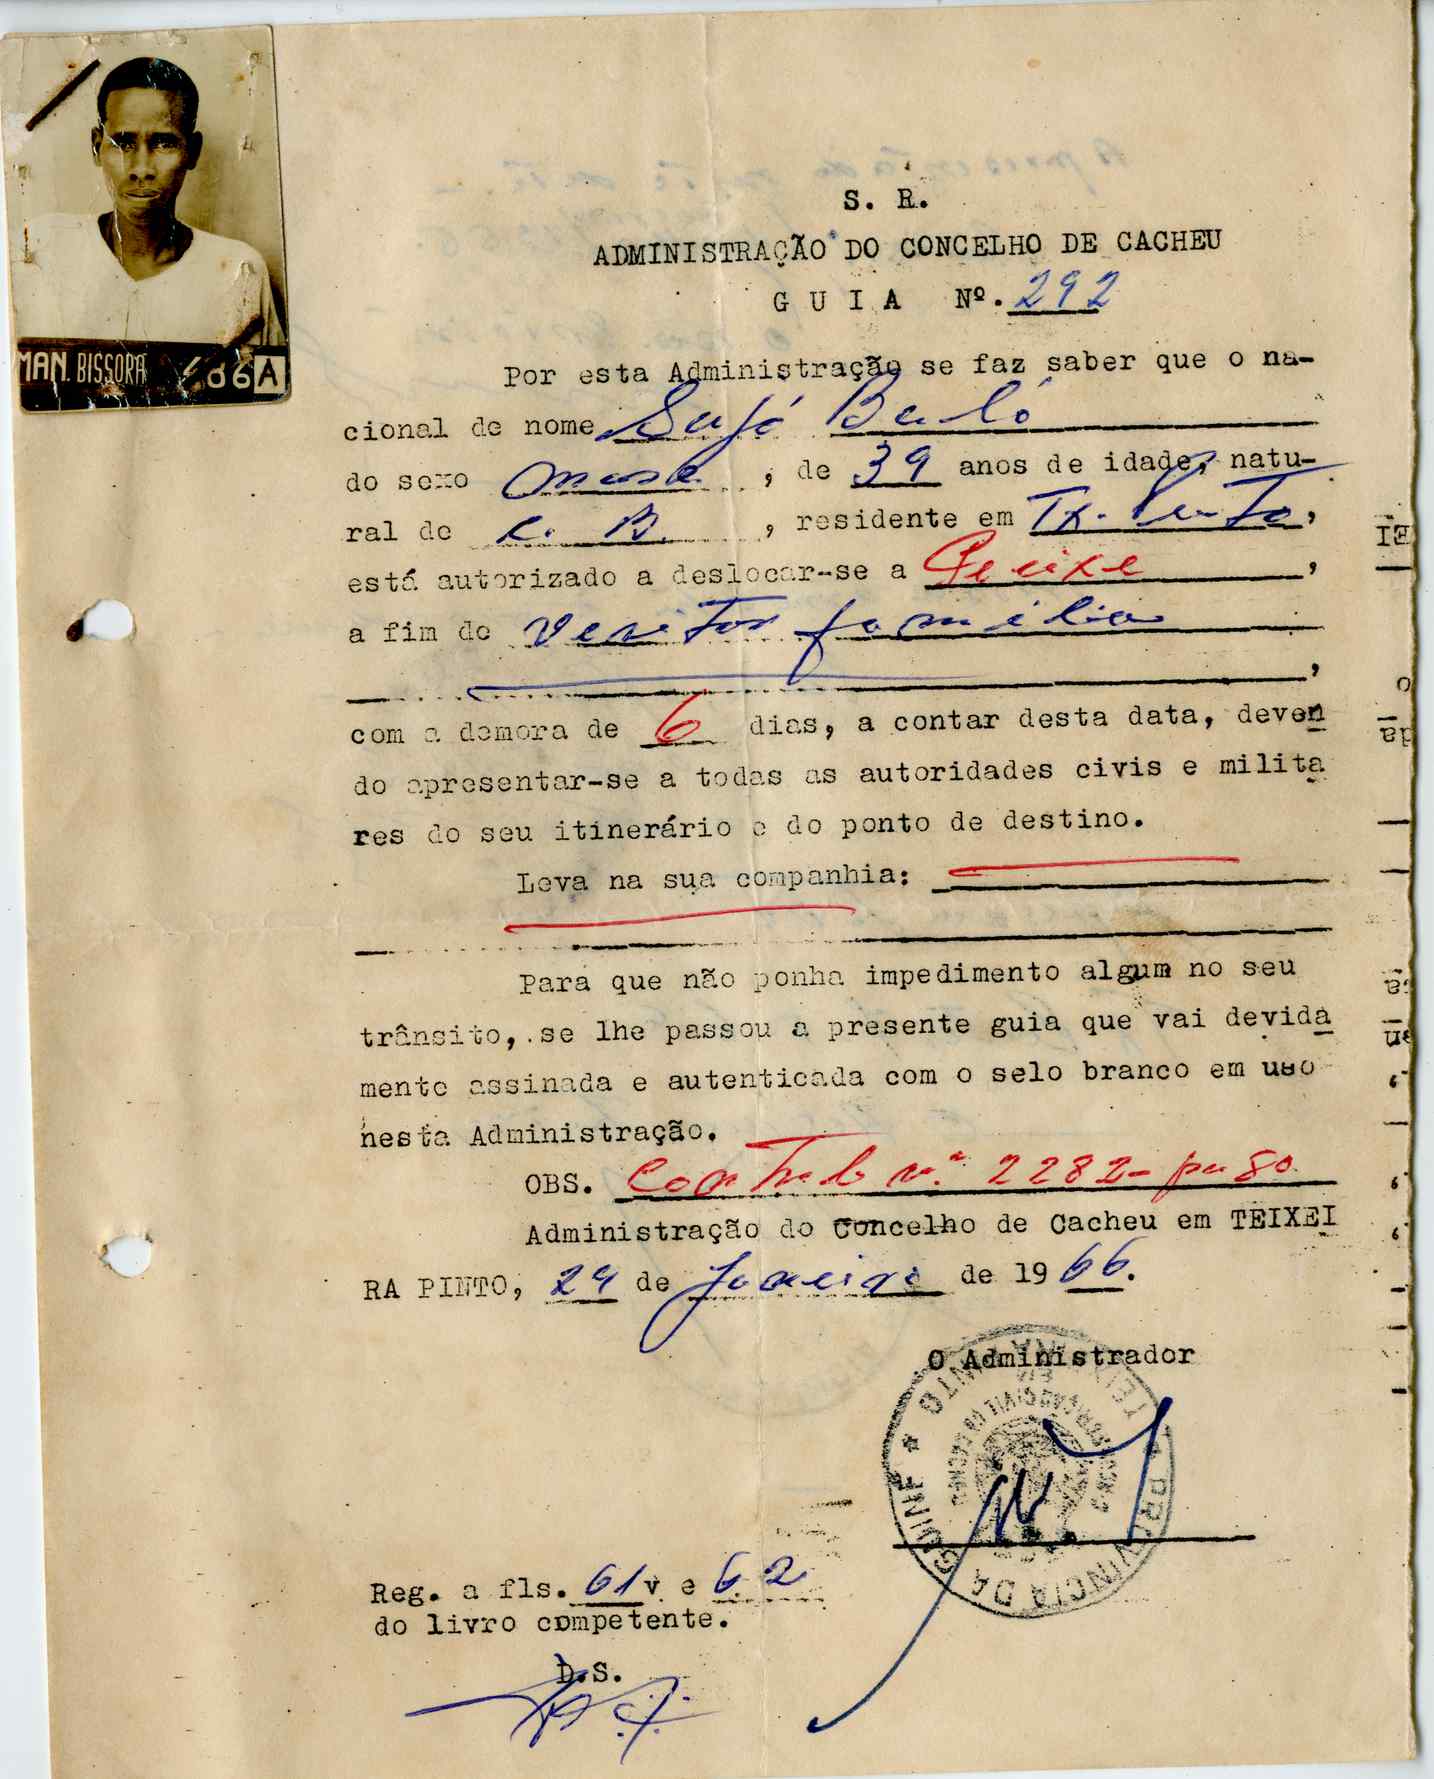 S. R.
ADMINISTRAÇÃO DO CONCELHO DE CACHEU
G U I A Nº. 292
MAN. BISSORA 686 A
Por esta Administração se faz saber que o na-
cional de nome
do sexo masc. , de 39 anos de idade, natu-
ral de C. B. , residente em Tx. Pinto,
está autorizado a deslocar-se a Peixe ,
a fim de visitar família
,
com a demora de 6 dias, a contar desta data, deven
do apresentar-se a todas as autoridades civis e milita
res do seu itinerário e do ponto de destino.
Leva na sua companhia:
Para que não ponha impedimento algum no seu
trânsito, se lhe passou a presente guia que vai devida
mente assinada e autenticada com o selo branco em uso
nesta Administração.
OBS. nº 2282-
Administração do Concelho de Cacheu em TEIXEI
RA PINTO, 29 de Janeiro de 1966.
O Administrador
PROVINCIA DA GUINÉ * TEIXEIRA PINTO
Reg. a fls. 61 v e 62
do livro competente.
D.S.